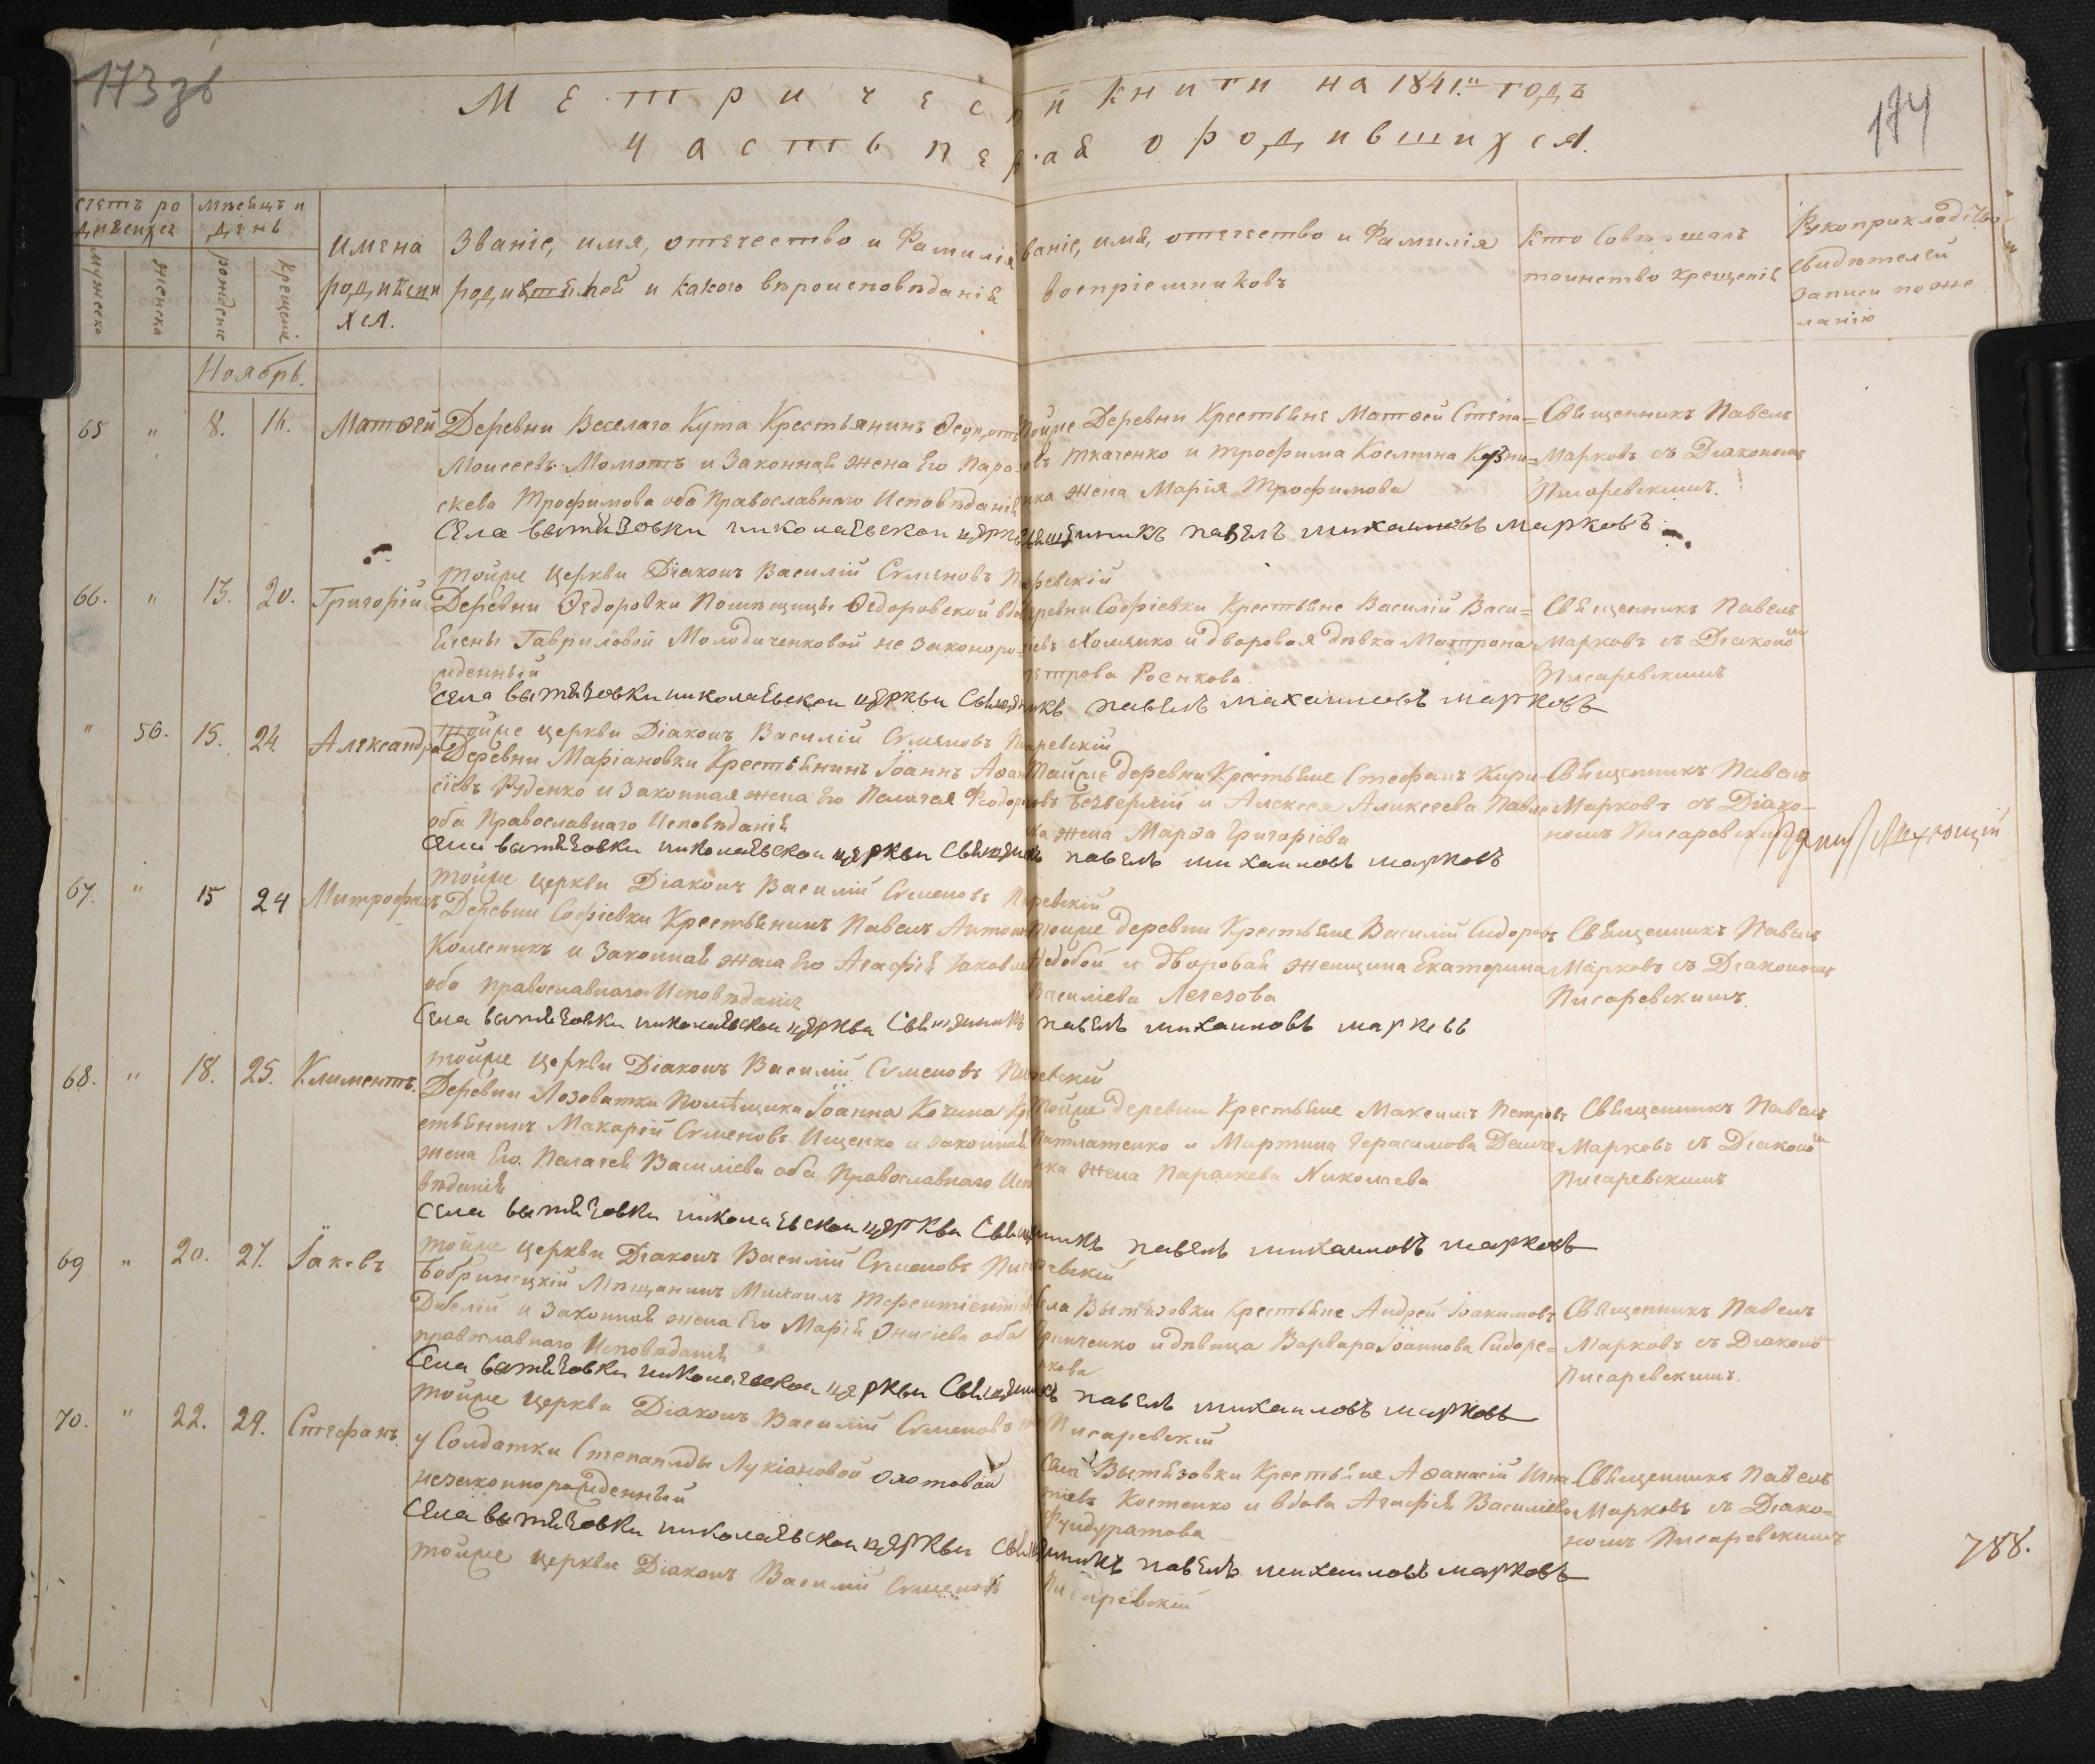 173 зв
174
Метрической книги на 1841.й годъ
Часть первая о родившихся.
счетъ родившихся
мѣсяцъ и день
мужеска
женска
рожденіе
крещеніе
имена родившихся.
Званіе, имя, отчество и Фамилія
родителей и какого вѣроисповѣданія
Званіе, имя, отчество и Фамилія
воспріемниковъ
Кто Совершалъ
таинство крещенія
Рукоприкладство
Свидѣтелей
записи по же
ланію
Ноябрь.
65 " 8. 16. Матѳей
Деревни Веселаго Кута Крестьянинъ
Моисеевъ Момотъ и Законная жена Его Пара
скева Трофимова оба Православнаго Исповѣданія
Тойже Деревни Крестьяне Матѳей Степа=
новъ Ткаченко и Трофима Космина Кузни=
ка жена Марія Трофимова
Священникъ Павелъ
Марковъ съ Діакономъ
Писаревскимъ.
Села вытязовки николаевской церкви священникъ павелъ михаиловъ марковъ
тойже Церкви Діаконъ Василій Семеновъ Писаревскій
66. " 13. 20. Григорій
Деревни Ѳедоровки Помѣщицы Ѳедоровской вдовы
Елены Гавриловой Молодиченковой не законоро
жденный
Деревни Софіевки Крестьяне Василій Васи=
ліевъ Хоменко и дворовая дѣвка Матрона
Петрова
Священникъ Павелъ
Марковъ съ Діакономъ
Писаревскимъ
Села вытязовки николаевской церкви священникъ павелъ михаиловъ марковъ
тойже церкви Діаконъ Василій Семеновъ Писаревскій
" 56. 15. 24. Александра
Деревни Маріановки Крестьянинъ Іоаннъ Аѳана
сіевъ Руденко и Законная жена Его Пелагея Феодорова
оба Православнаго Исповѣданія
Тойже деревни Крестьяне Стефанъ Кири
ловъ Безверхій и Алексея Аликсеева
ка жена Марѳа Григоріева
Священникъ Павелъ
Марковъ съ Діако-
номъ Писаревскимъ
Села вытязовки николаевской церкви священникъ павелъ михаиловъ марковъ
тойже церкви Діаконъ Василій Семеновъ Писаревскій
67. " 15 24 Митрофанъ
Деревни Софіевки Крестьянинъ Павелъ Антоновъ
Колесникъ и Законная жена Его Агафія Іаковлева
оба православнаго Исповѣданія
Тойже деревни Крестьяне Василій Сидоровъ
Недобой и дворовая женщина Екатерина
Василіева Легезова
Священникъ Павелъ
Марковъ съ Діакономъ
Писаревскимъ.
Села вытязовки николаевской церкви священникъ павелъ михаиловъ марковъ
тойже церкви Діаконъ Василій Семеновъ Писаревскій
68. " 18. 25. Климентъ.
Деревни Лозоватки Помѣщика Іоанна Кре
стьянинъ Макарій Семеновъ Ищенко и законная
жена Его Пелагея Василіева оба Православнаго Испо
вѣданія
Тойже деревни Крестьяне Максимъ Петровъ
Патлатенко и Мартина Герасимова Демче
нка жена Параскева Николаева
Священникъ Павелъ
Марковъ съ Діакономъ
Писаревскимъ
Села вытязовки николаевской церкви священникъ павелъ михаиловъ марковъ
тойже церкви Діаконъ Василій Семеновъ Писаревскій
69 " 20. 27. Іаковъ
Бобринецкій Мѣщанинъ Михаилъ Терентіевъ
и Законная жена Его Марія Онисіева оба
православнаго Исповѣданія
Села Вытязовки Крестьяне Андрей Іоакимовъ
Гринченко и дѣвица Варвара Іоаннова Сидоре=
нкова
Священникъ Павелъ
Марковъ съ Діакономъ
Писаревскимъ.
Села вытязовки николаевской церкви священникъ павелъ михаиловъ марковъ
тойже церкви Діаконъ Василій Семеновъ Писаревскій
70. " 22. 29. Стефанъ.
у Солдатки Степаниды Лукіановой
незаконнорожденный
Села Вытязовки Крестьяне Аѳанасій Игна
тіевъ Костенко и вдова Агафія Василіева
Священникъ Павелъ
Марковъ съ Діако=
номъ Писаревскимъ
Села вытязовки николаевской церкви священникъ павелъ михаиловъ марковъ
тойже церкви Діаконъ Василій Семеновъ Писаревскій
788.